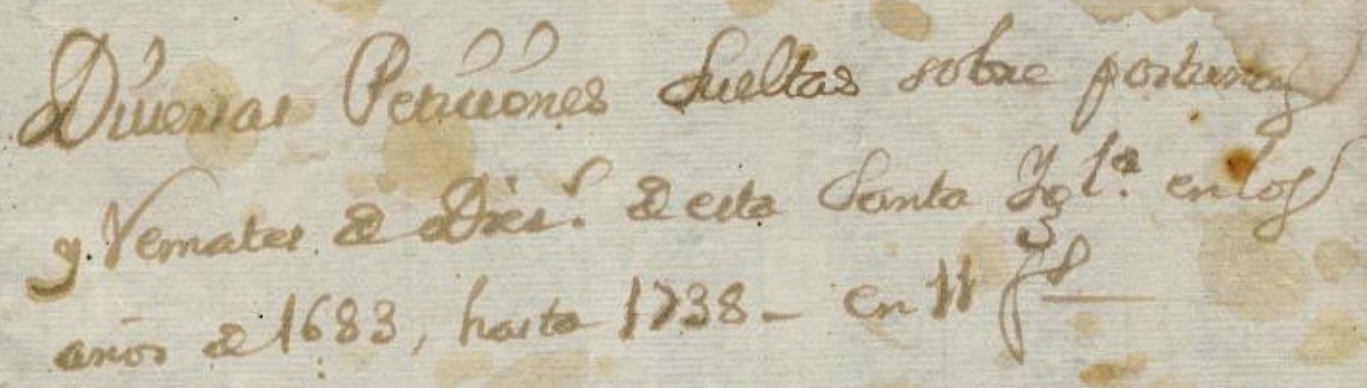 Diuersas Peticiones sueltas sobre posturas
y Remates de Diezs. de esta Santa Ygla. en los
años de 1683, hasta 1738 - en 11 fs